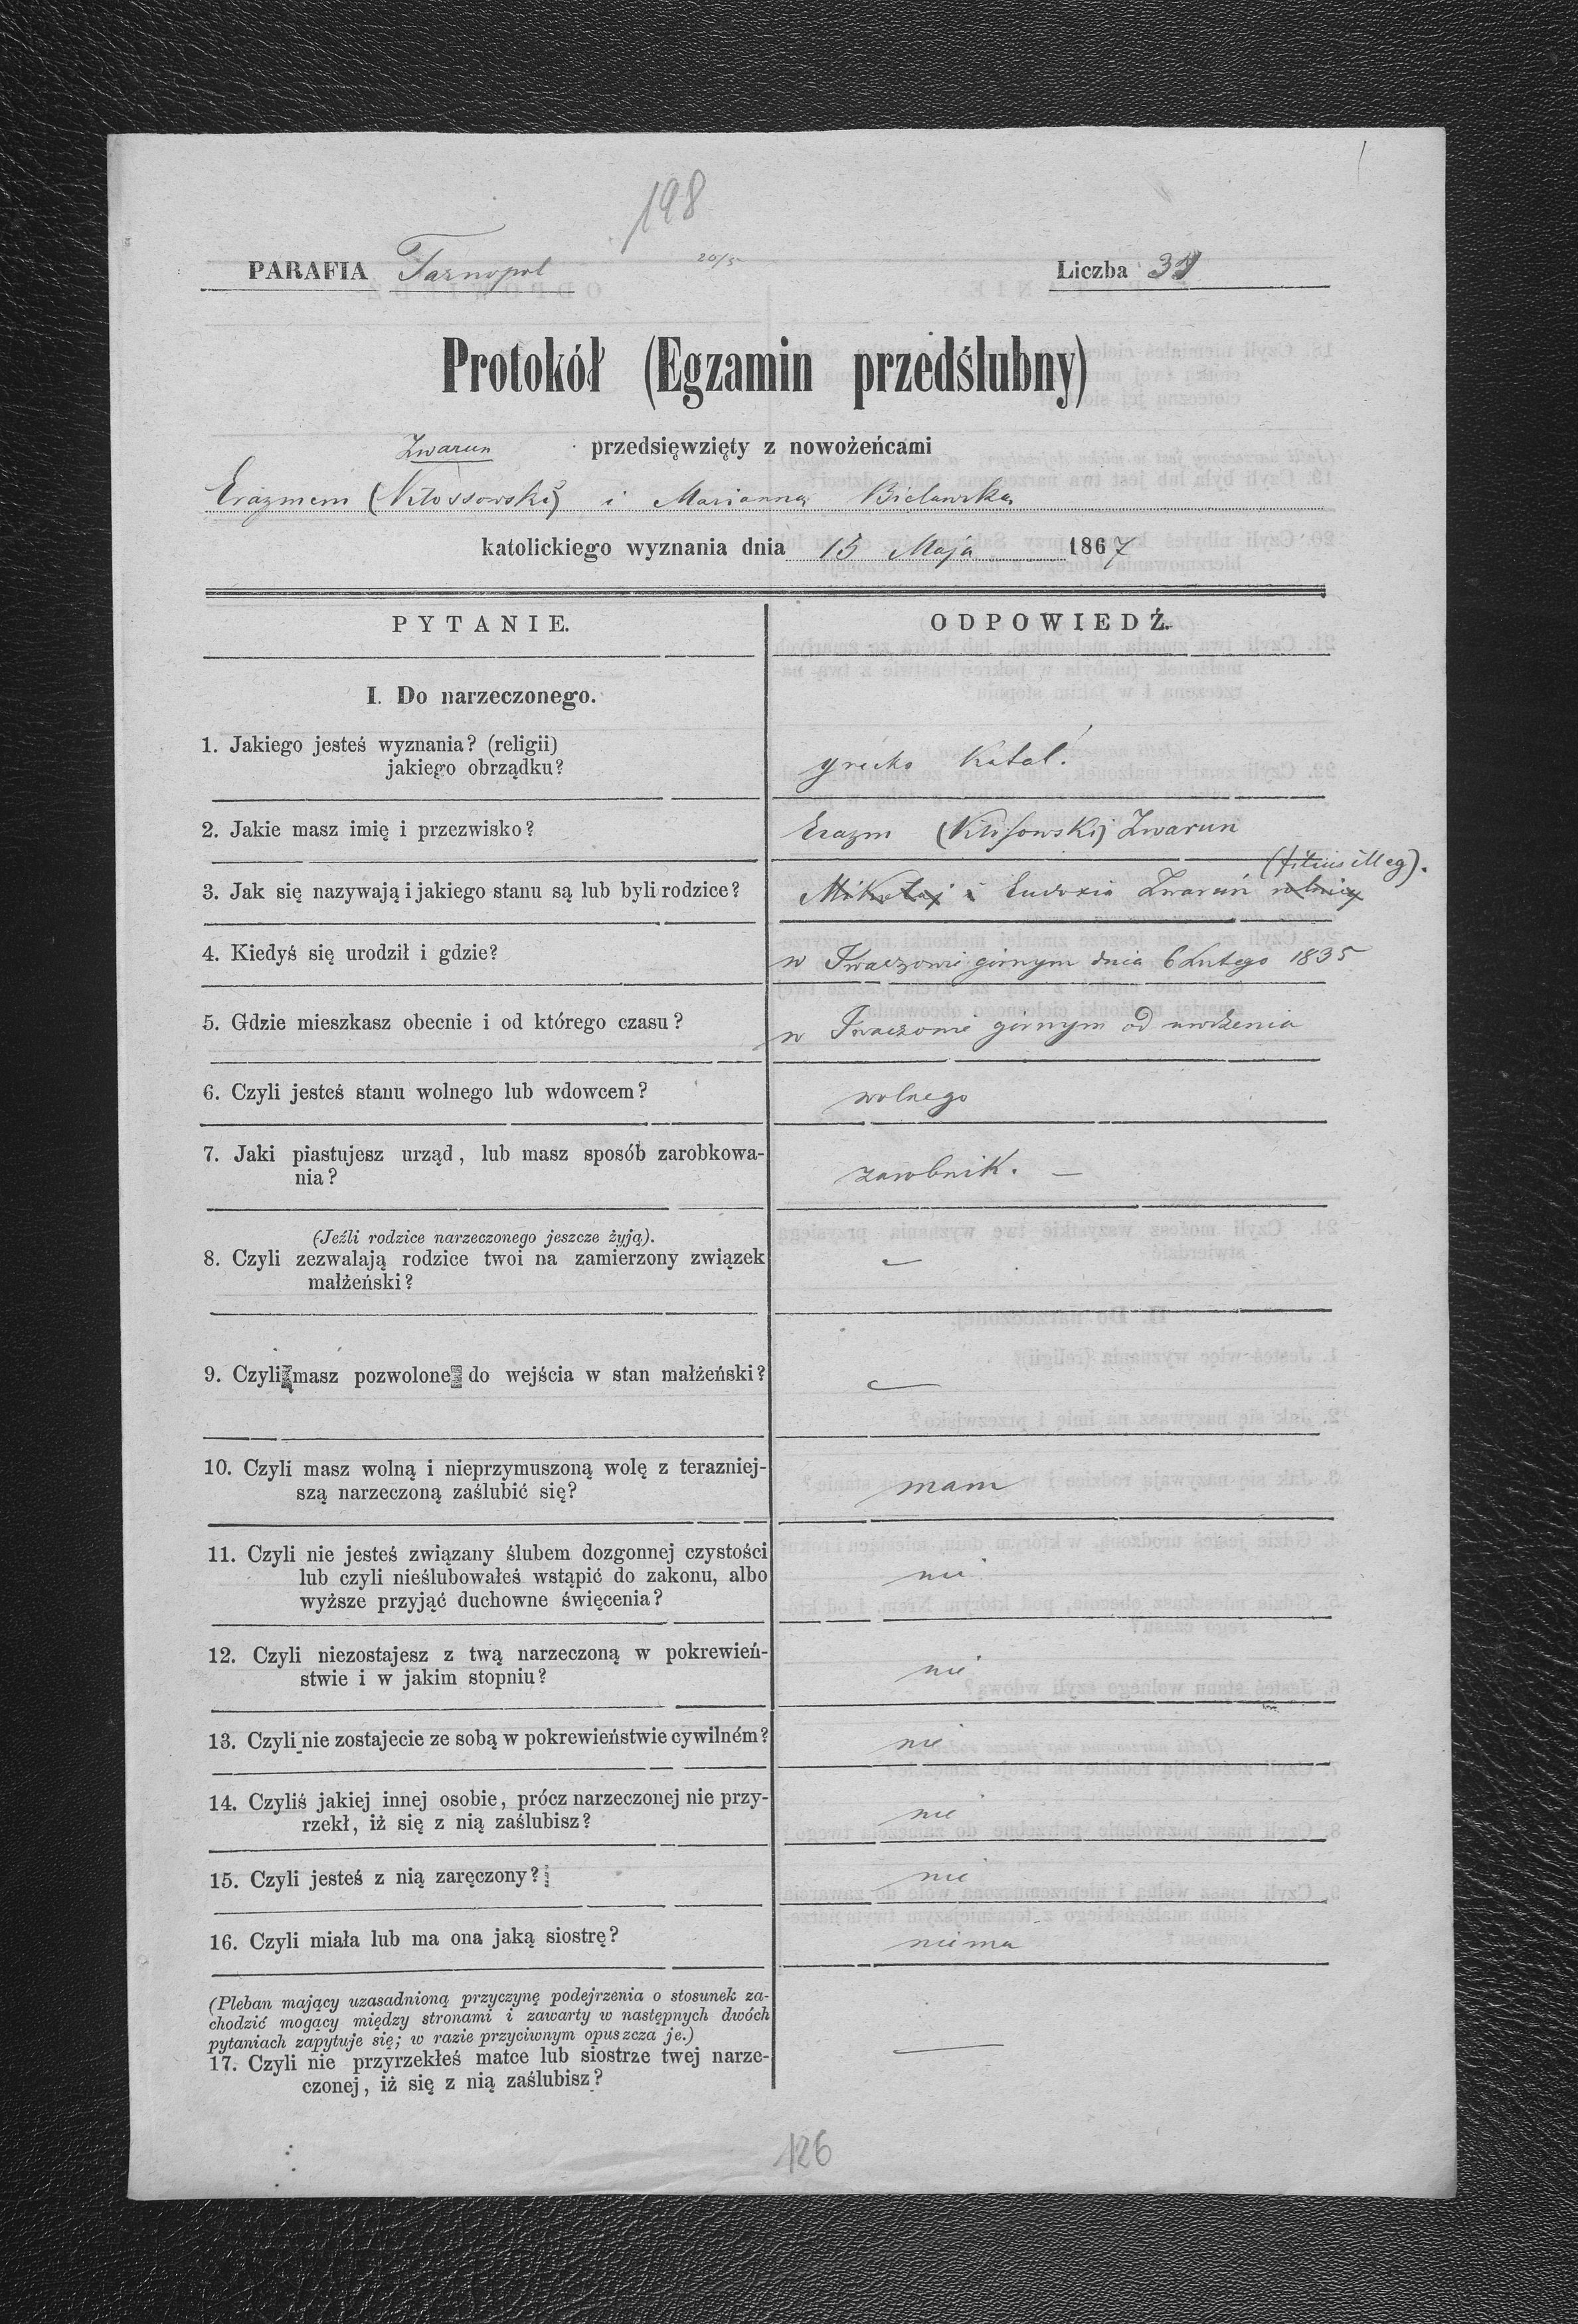 198
PARAFIA Tarnopol 20/5 Liczba 39
Protokół (Egzamin przedślubny)
przedsięwzięty z nowożeńcami
Zwarun
Erazmem (Kłossowski) i Marianną Bielawską
katolickiego wyznania dnia 15 Maja 1867
PYTANIE. ODPOWIEDŹ.
I. Do narzeczonego.
1. Jakiego jesteś wyznania? (religii)
jakiego obrządku? grecko Katol.
2. Jakie masz imię i przezwisko? Erazm Zwarun
(filius illeg).
3. Jak się nazywają i jakiego stanu są lub byli rodzice? Mikołaj i Eudoxia Zwarun rolnicy
4. Kiedyś się urodził i gdzie? w Iwaczowie górnym dnia 6 Lutego 1835
5. Gdzie mieszkasz obecnie i od którego czasu? w Iwaczowie górnym od urodzenia
6. Czyli jesteś stanu wolnego lub wdowcem? wolnego
7. Jaki piastujesz urząd, lub masz sposób zarobkowa-
nia? zarobnik. —
(Jeźli rodzice narzeczonego jeszcze żyją).
8. Czyli zezwalają rodzice twoi na zamierzony związek
małżeński?
9. Czyli masz pozwolone do wejścia w stan małżeński?
10. Czyli masz wolną i nieprzymuszoną wolę z terazniej-
szą narzeczoną zaślubić się? mam
11. Czyli nie jesteś związany ślubem dozgonnej czystości
lub czyli nieślubowałeś wstąpić do zakonu, albo nie
wyższe przyjąć duchowne święcenia?
12. Czyli niezostajesz z twą narzeczoną w pokrewień-
stwie i w jakim stopniu? nie
13. Czyli nie zostajecie ze sobą w pokrewieństwie cywilném? nie
14. Czyliś jakiej innej osobie, prócz narzeczonej nie przy-
rzekł, iż się z nią zaślubisz? nie
15. Czyli jesteś z nią zaręczony? nie
16. Czyli miała lub ma ona jaką siostrę? niema
(Pleban mający uzasadnioną przyczynę podejrzenia o stosunek za-
chodzić mogący między stronami i zawarty w następnych dwóch
pytaniach zapytuje się; w razie przyciwnym opuszcza je.)
17. Czyli nie przyrzekłeś matce lub siostrze twej narze-
czonej, iż się z nią zaślubisz? —
126